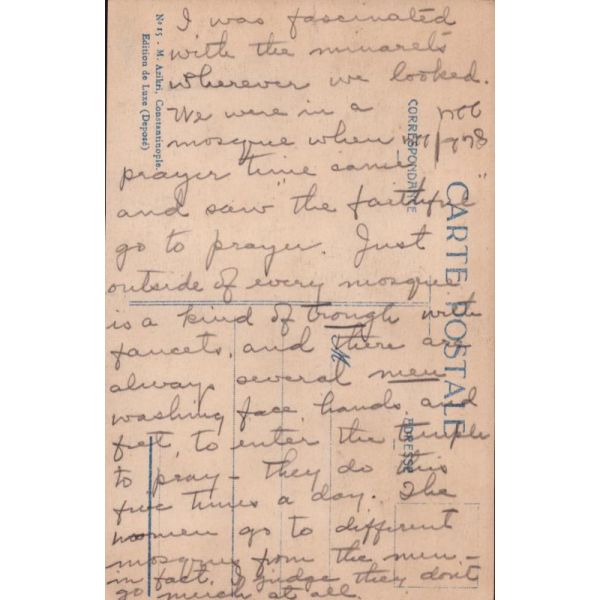 I was fascinated
with the minarets
wherever we looked.
We were in a
mosque when
prayer time came
and saw "the faithful"
go to prayer. Just
outside of every mosque
is a kind of trough with
faucets, and there are
always several men
washing face, hands, and
feet, to enter the temple
to pray - they do this
five times a day. The
women go to different
mosques from the men -
in fact, I judge they don't
go much at all.
No 15 - M. Azikri, Constantinople.
Edition de Luxe (Deposé)
CARTE POSTALE
CORRESPONDANCE
ADRESSE
M